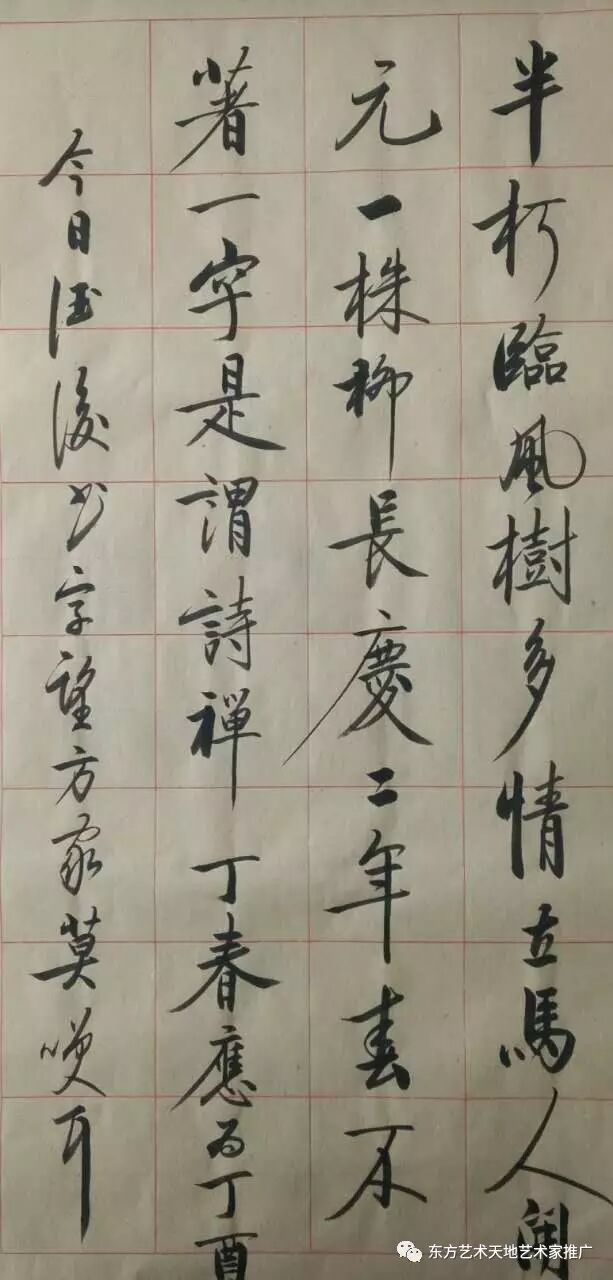 半朽臨風樹多情立馬人開
元一株柳長慶二年春不
著一字是謂詩禪丁春應為丁酉
今日酒後書字望方家莫哂耳
东方艺术天地艺术家推广